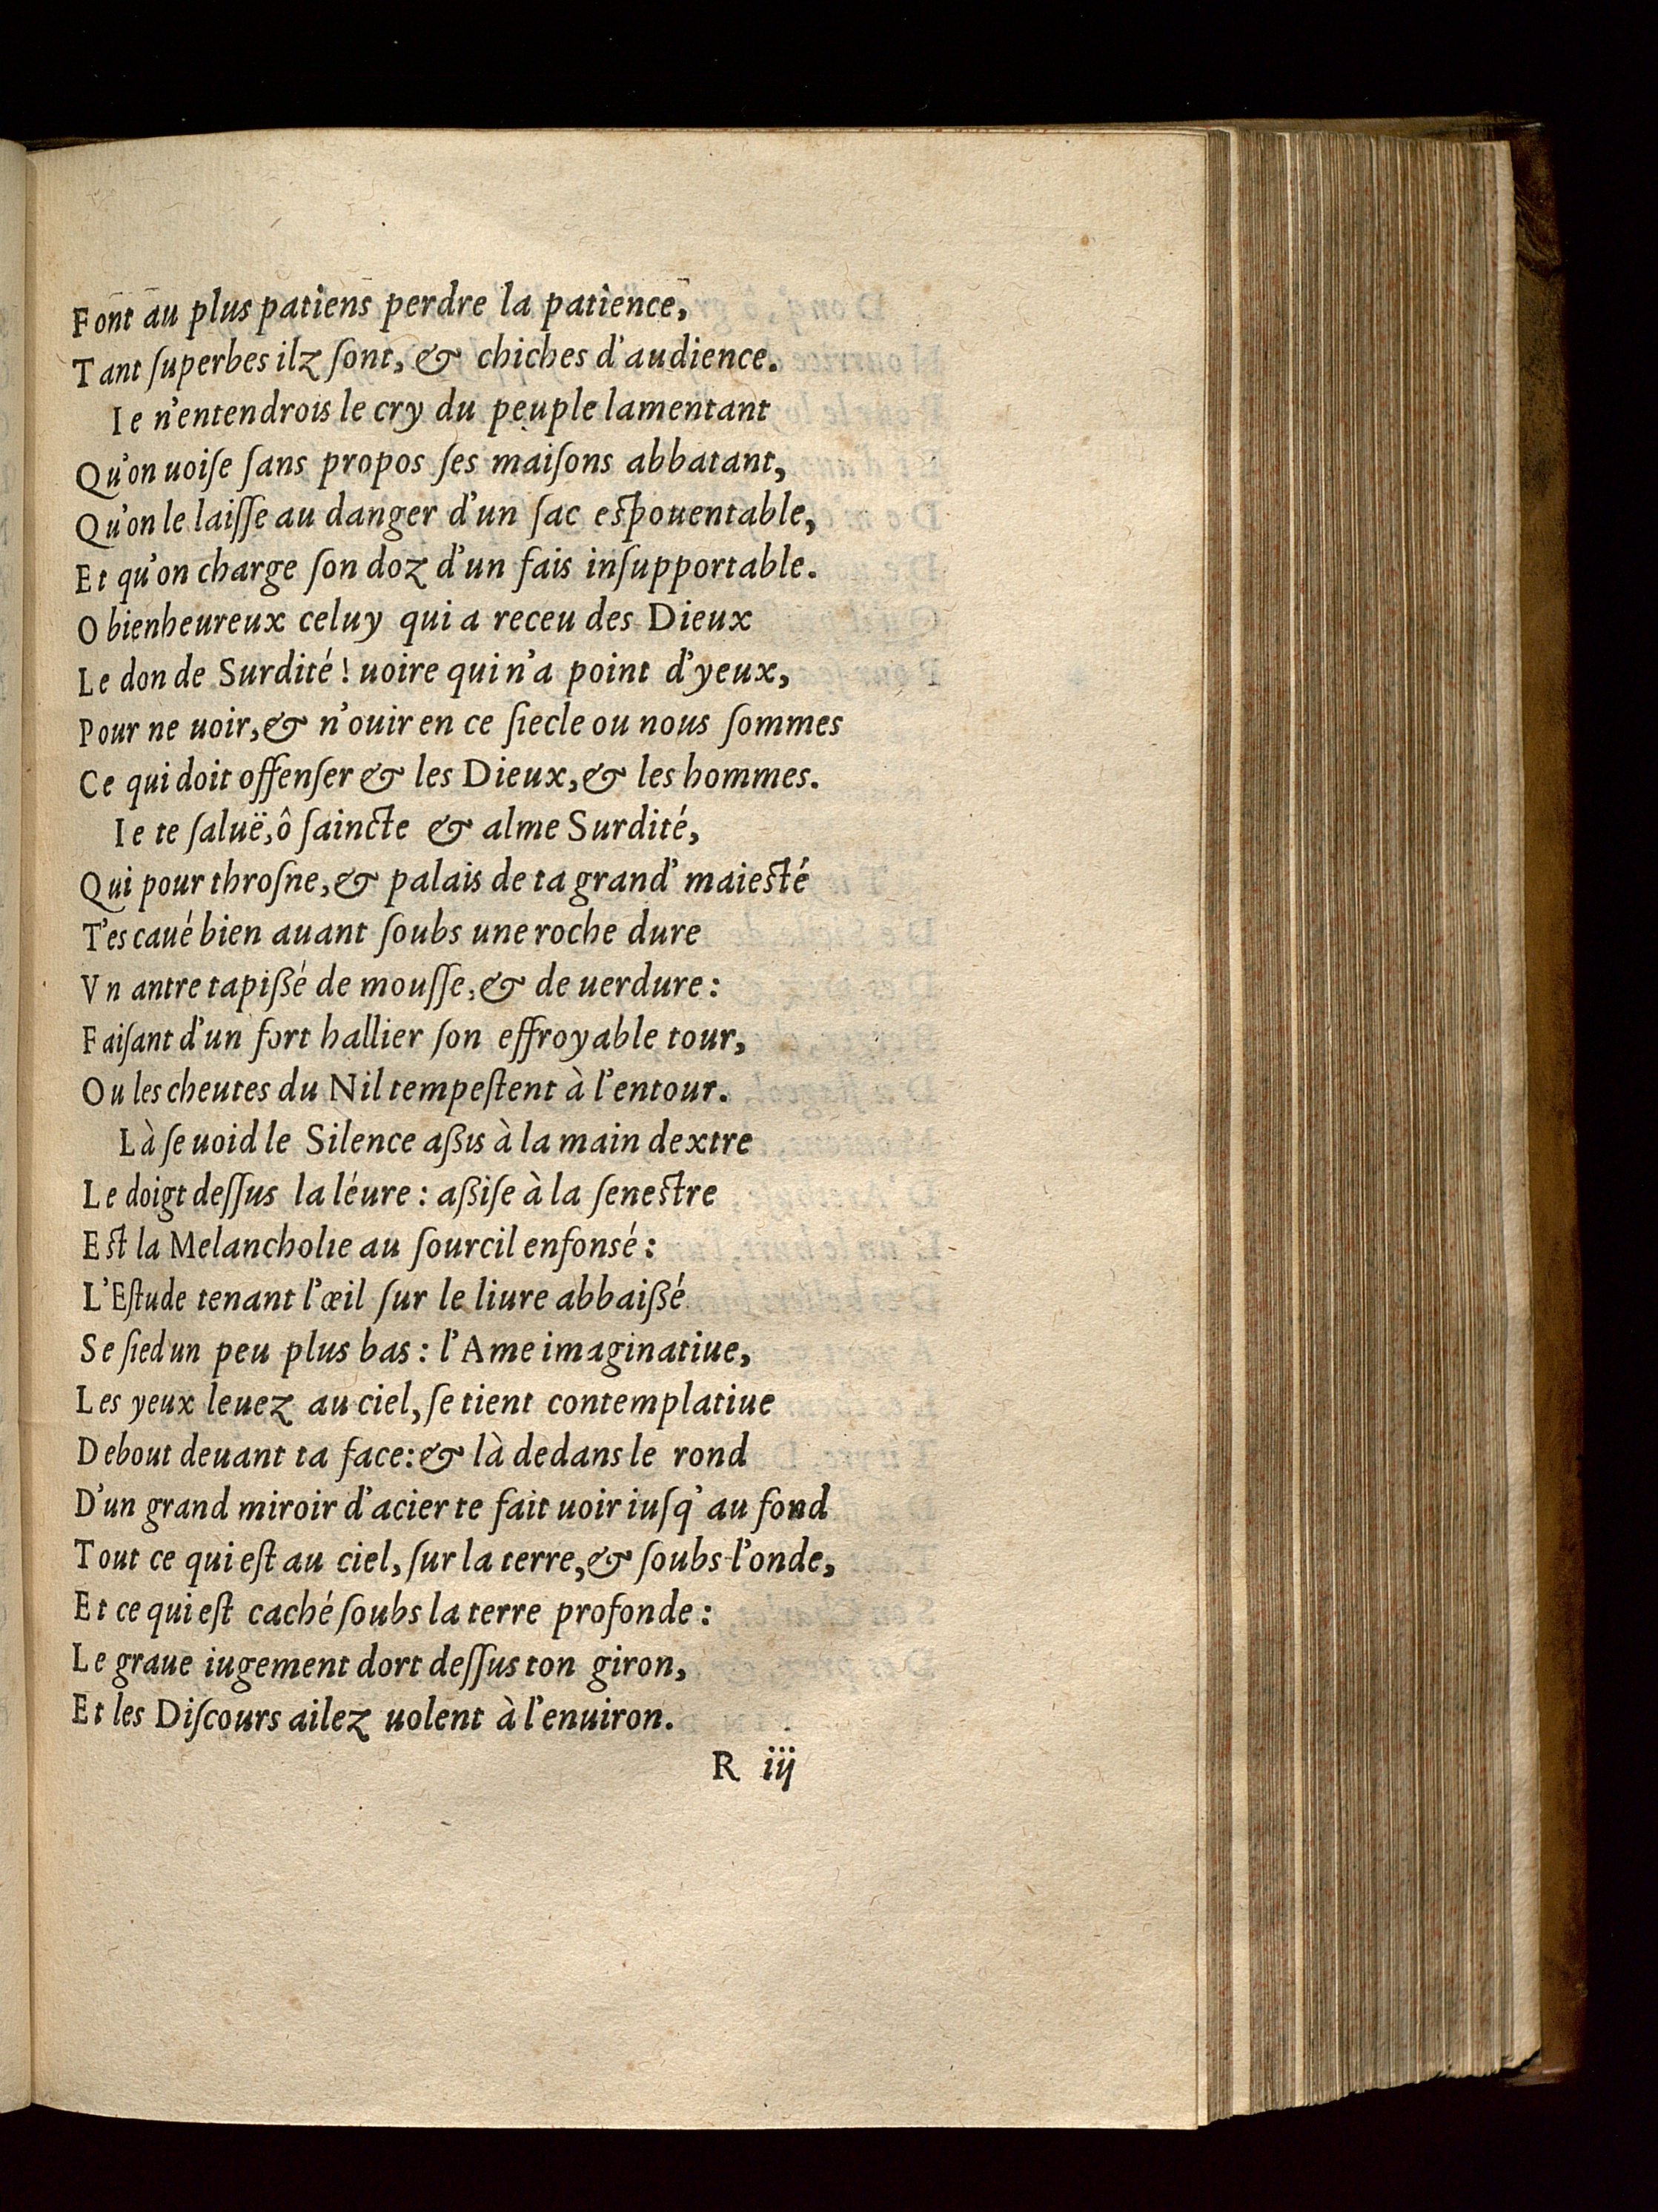 Font au plus patiens perdre la patience,
Tant ſuperbes ilz ſont, & chiches d'audience.
Ie n'entendrois le cry du peuple lamentant
Qu'on uoiſe ſans propos ſes maiſons abbatant,
Qu'on le laiſſe au danger d'un ſac eſpouentable,
Et qu'on charge ſon doz d'un fais inſupportable.
O bienheureux celuy qui a receu des Dieux
Le don de Surdité! uoire qui n'a point d'yeux,
Pour ne uoir, & n'ouir en ce ſiecle ou nous ſommes
Ce qui doit offenſer & les Dieux, & les hommes.
Ie te ſaluë, ô ſaincte & alme Surdité,
Qui pour throſne, & palais de ta grand' maieſté
T'es caué bien auant ſoubs une roche dure
Vn antre tapißé de mouſſe, & de uerdure:
Faiſant d'un fort hallier ſon effroyable tour,
Ou les cheutes du Nil tempeſtent à l'entour.
Là ſe uoid le Silence aßis à la main dextre
Le doigt deſſus la léure: aßiſe à la ſeneſtre
Eſt la Melancholie au ſourcil enfonsé:
L'Eſtude tenant l'œil ſur le liure abbaißé
Se ſied un peu plus bas: l'Ame imaginatiue,
Les yeux leuez au ciel, ſe tient contemplatiue
Debout deuant ta face: & là dedans le rond
D'un grand miroir d'acier te fait uoir iuſq' au fond
Tout ce qui eſt au ciel, ſur la terre, & ſoubs l'onde,
Et ce qui eſt caché ſoubs la terre profonde:
Le graue iugement dort deſſus ton giron,
Et les Diſcours ailez uolent à l'enuiron.
R iij